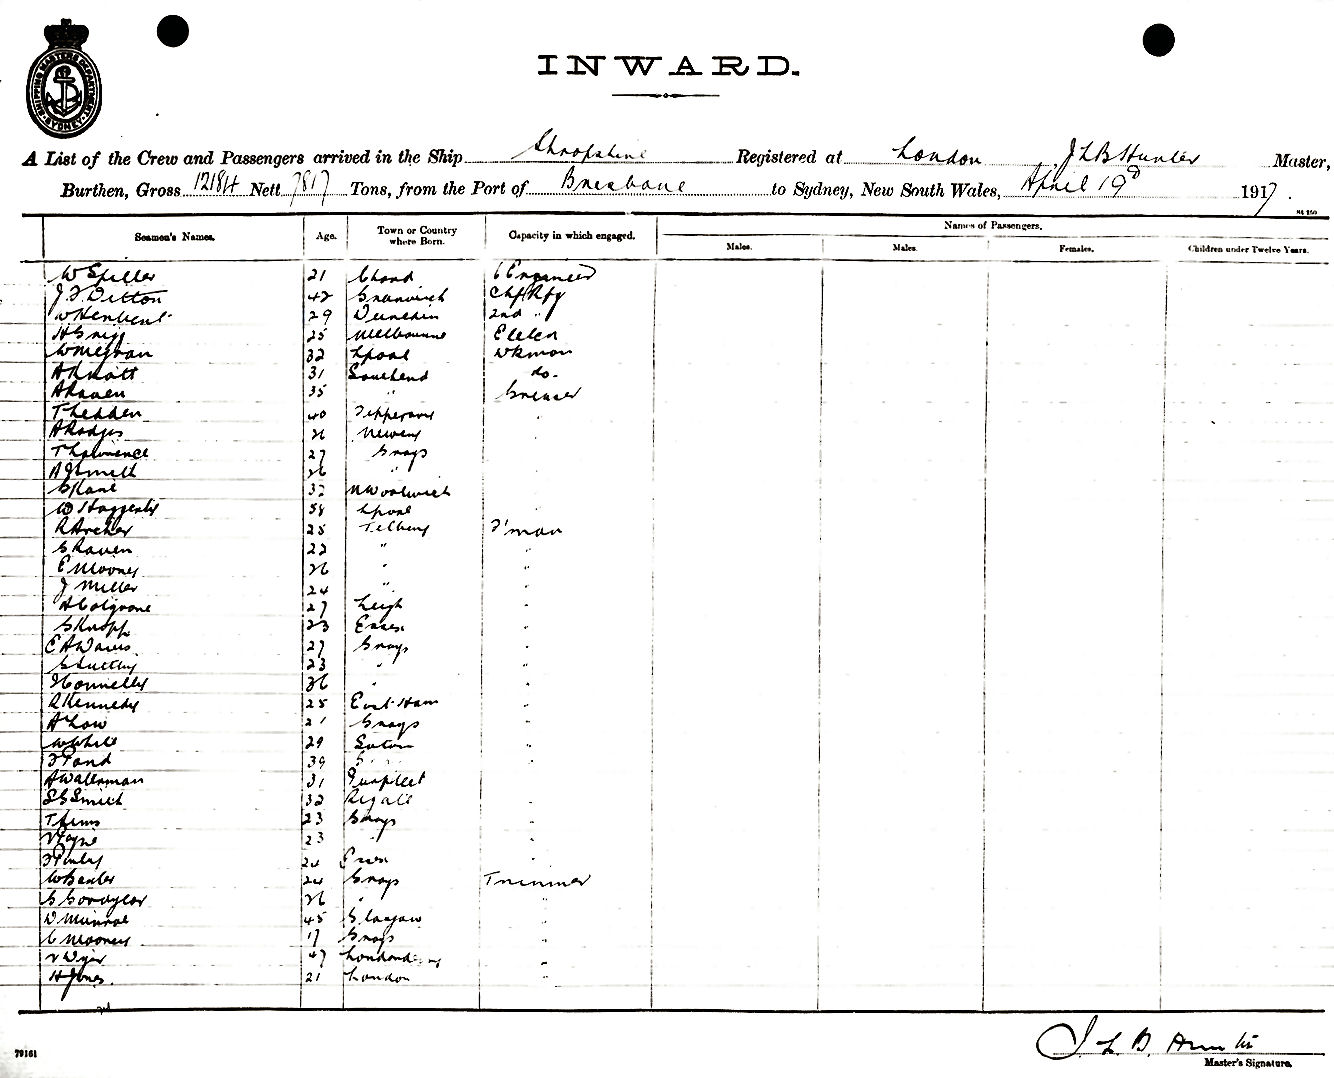 SHIPPING MASTERS DEPARTMENT SYDNEY
INWARD.
A List of the Crew and Passengers arrived in the Ship Shropshire Registered at London J L B Hunter Master,
Burthen, Gross 12184 Nett 7817 Tons, from the Port of Brisbane to Sydney, New South Wales, April 19 1917.
Seamen's Names. Age. Town or Country where Born. Capacity in which engaged. Names of Passengers.
Males. Males. Females. Children under Twelve Years.
W Spiller 21 6 Engineer
J F Ditton 42 Greenwich Chf Rfg
W Herbert 29 Dunedin 2nd "
H Greig 25 Melbourne Elec
W 32 Lpool Wkman
A Knott 31 Southend do.
A Raven 35 " Greaser
T 40 Tipperary "
A Rodgers 26
T Lawrence 27 Grays
A J Smith 26 "
G Kane 32 N Woolwich
W Haggerty 38 Lpool
R Archer 25 Tilbury F'man
G Raven 22 " "
E Mooney 26 " "
J Miller 24 " "
A Colgrove 27 Leigh "
G Knopp 23 Essex "
E A Davis 27 Grays "
G 23 " "
J Connelly 36 " "
R Kennedy 25 East Ham "
A Low 21 Grays "
W White 29 "
F Pond 39 "
A Waterman 31 Purfleet "
S G Smith 32 "
T 23 Grays "
Payne 23 " "
24 Essex "
W Baxter 24 Grays Trimmer
G 26 " "
D Munroe 45 Glasgow "
C Mooney 17 Grays "
Dyer 47 Londonderry "
H Jones. 21 London "
J. L. B. Hunter
Master's Signature.
79161